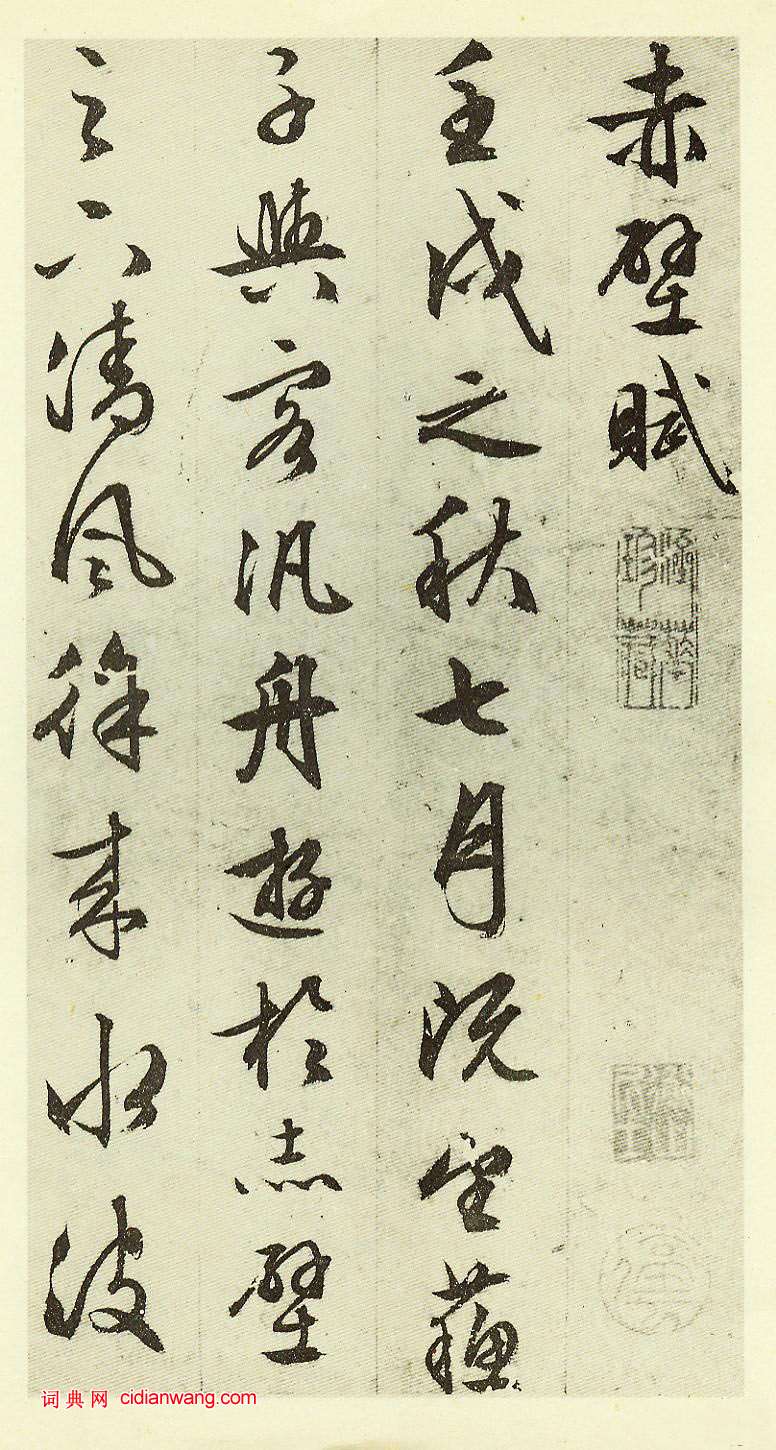 赤壁賦
壬戌之秋七月既望蘇
子與客汎舟遊於赤壁
之下清風徐来水波
词典网 cidianwang.com